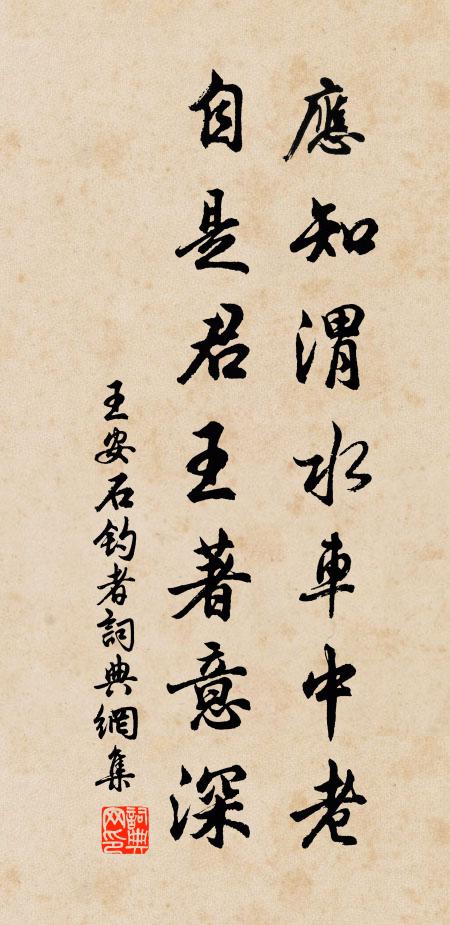 應知渭水車中老
自是君王著意深
王安石釣者詞典網集
詞典网印